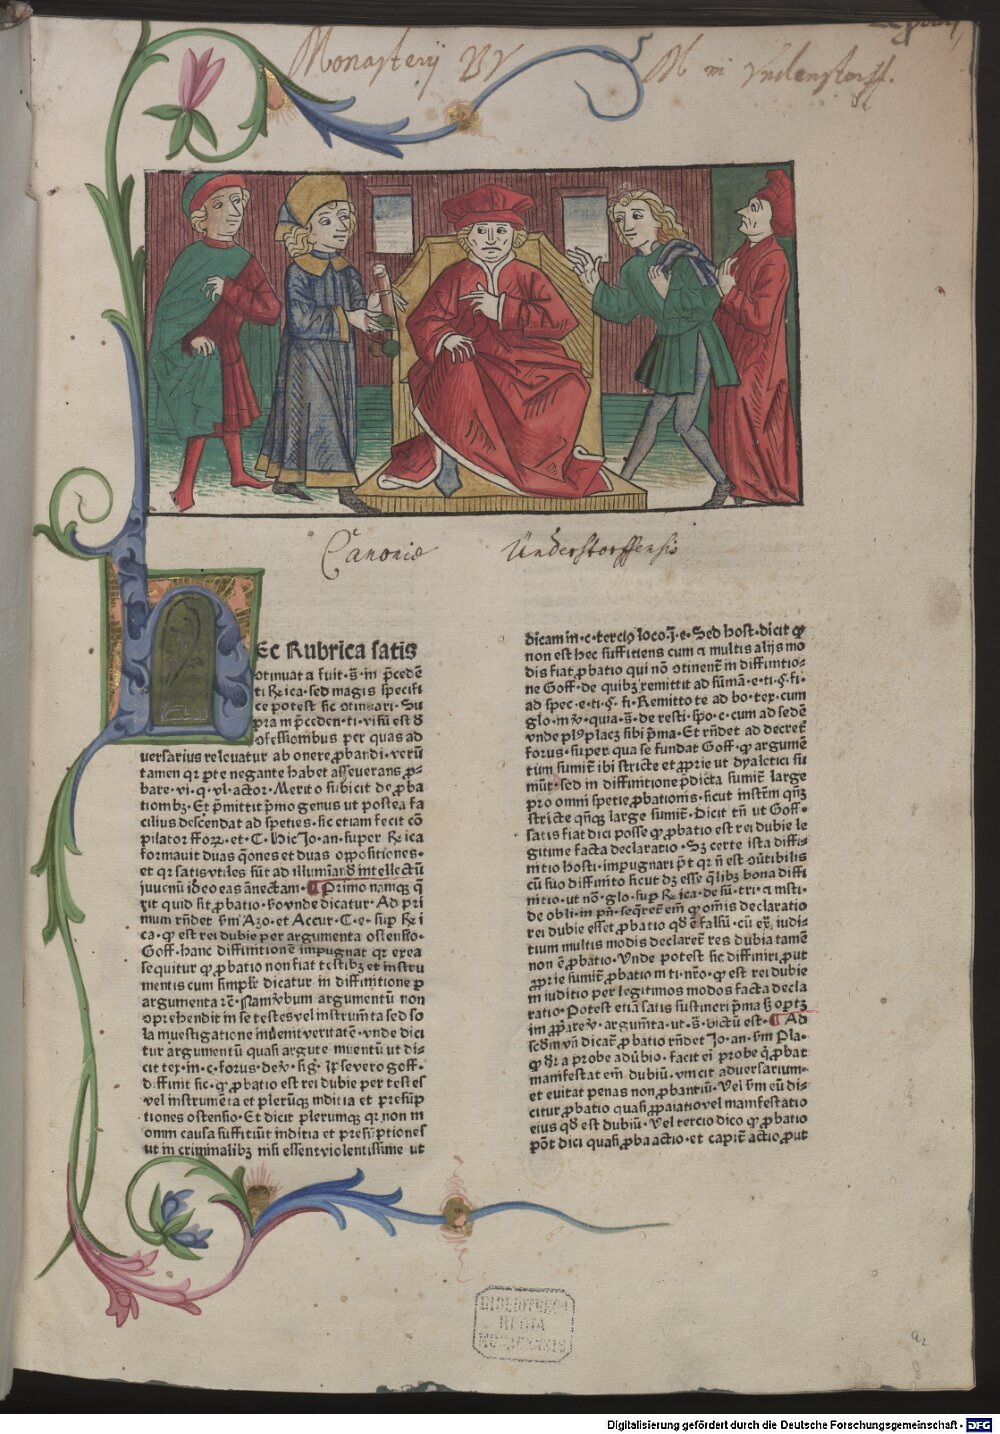 Monasterij BV M in Undenstorff.
Canoniæ Understorffensis
Ec Rubrica satis
ↄtinuata fuit·s̄·in p̄cedē
ti R̄ica·sed magis specifi
ce potest sic ↄtinuari·Su
pra in p̄ceden·ti·visū est d̄
ↄfessionibus per quas ad
versarius relevatur ab onere ꝓbandi·verū
tamen qꝛ ꝑte negante habet asseverans ꝓ⸗
bare·vi·q·vl·actor·Merito subicit de ꝓba
tionibꝫ·Et p̄mittit p̄mo genus ut postea fa
cilius descendat ad speties·sic etiam fecit cō
pilator ff
formavit duas q̄ones et duas oppositiones·
et qꝛ satis utiles sūt ad illumīand̄ intellectū
iuvenū ideo eas ānectam·Primo namqꝫ q̄
rit quid sit ꝓbatio·
mum rn̄det
ca·ꝙ est rei dubie per argumenta ostensio·
Goff·hanc diffinitionē impugnat qꝛ ex ea
sequitur ꝙ ꝓbatio non fiat testibꝫ et instru
mentis cum simplr̄ dicatur in diffinitione ꝑ
argumenta rē·Nam verbum argumentū non
ↄprehendit in se testes vel instrum̄ta sed so
la investigatione invēnit veritatē·vnde dici
tur argumentū quasi argute inventū ut di⸗
cit tex·in·c·forus·de
diffinit sic·ꝙ ꝓbatio est rei dubie per testes
vel instrumēta et plerūqꝫ inditia et presūp
tiones ostensio·Et dicit plerumqꝫ qꝛ non in
omni causa suffitiūt inditia et presūptiones
ut in criminalibꝫ nisi essent violentissime ut
dicam in·c·tercio loco·j·e·Sed host·dicit ꝙ
non est hec suffitiens cum a multis alijs mo
dis fiat ꝓbatio qui nō ↄtinentr̄ in diffinitio⸗
ne Goff·de quibꝫ remittit ad sūmā·e·ti·§·fi·
ad spec·e·ti·§·fi·Remitto te ad bo·tex·cum
glo·in
vnde
forus·super qua se fundat Goff·ꝙ argumē
tum sumitr̄ ibi stricte et ꝓprie ut dyaletici su
mūt·sed in diffinitione p̄dicta sumitr̄ large
pro omni spetie ꝓbationis·sicut instrm̄ qn̄qꝫ
stricte qn̄qꝫ large sumitr̄·Dicit tn̄ ut Goff·
satis fiat dici posse ꝙ ꝓbatio est rei dubie le
gitime facta declaratio·Sꝫ certe ista diffi⸗
nitio hosti·impugnari
cū suo diffinito sicut dꝫ esse q̄libꝫ bona diffi
nitio·ut no·
de obli·in pn̄·seq̄retr̄ em̄ ꝙ omis declaratio
rei dubie esset ꝓbatio qd̄ ē falsū·cū
tium multis modis declaretr̄ res dubia tamē
non ē ꝓbatio·Vnde potest sic diffiniri ꝓut
ꝓprie sumitr̄ ꝓbatio in ti·nrō·ꝙ est rei dubie
in iuditio per legitimos modos facta decla
ratio·Potest etiā satis sustineri p̄ma
Ad
sedm̄ vn̄ dicatr̄ ꝓbatio rn̄det Jo·an·
ꝙ dr̄ a probe adūbio·facit ei probe qꝫ ꝓbat
manifestat em̄ dubiū·vincit adversarium·
et evitat penas non ꝓbantiū·Vel
citur ꝓbatio quasi
eius qd̄ est dubiū·Vel tercio dico ꝙ ꝓbatio
pōt dici quasi ꝓba actio·et capitr̄ actio ꝓut
BIBLIOTHECA
REGIA
MONACENSIS
Digitalisierung gefördert durch die Deutsche Forschungsgemeinschaft - DFG